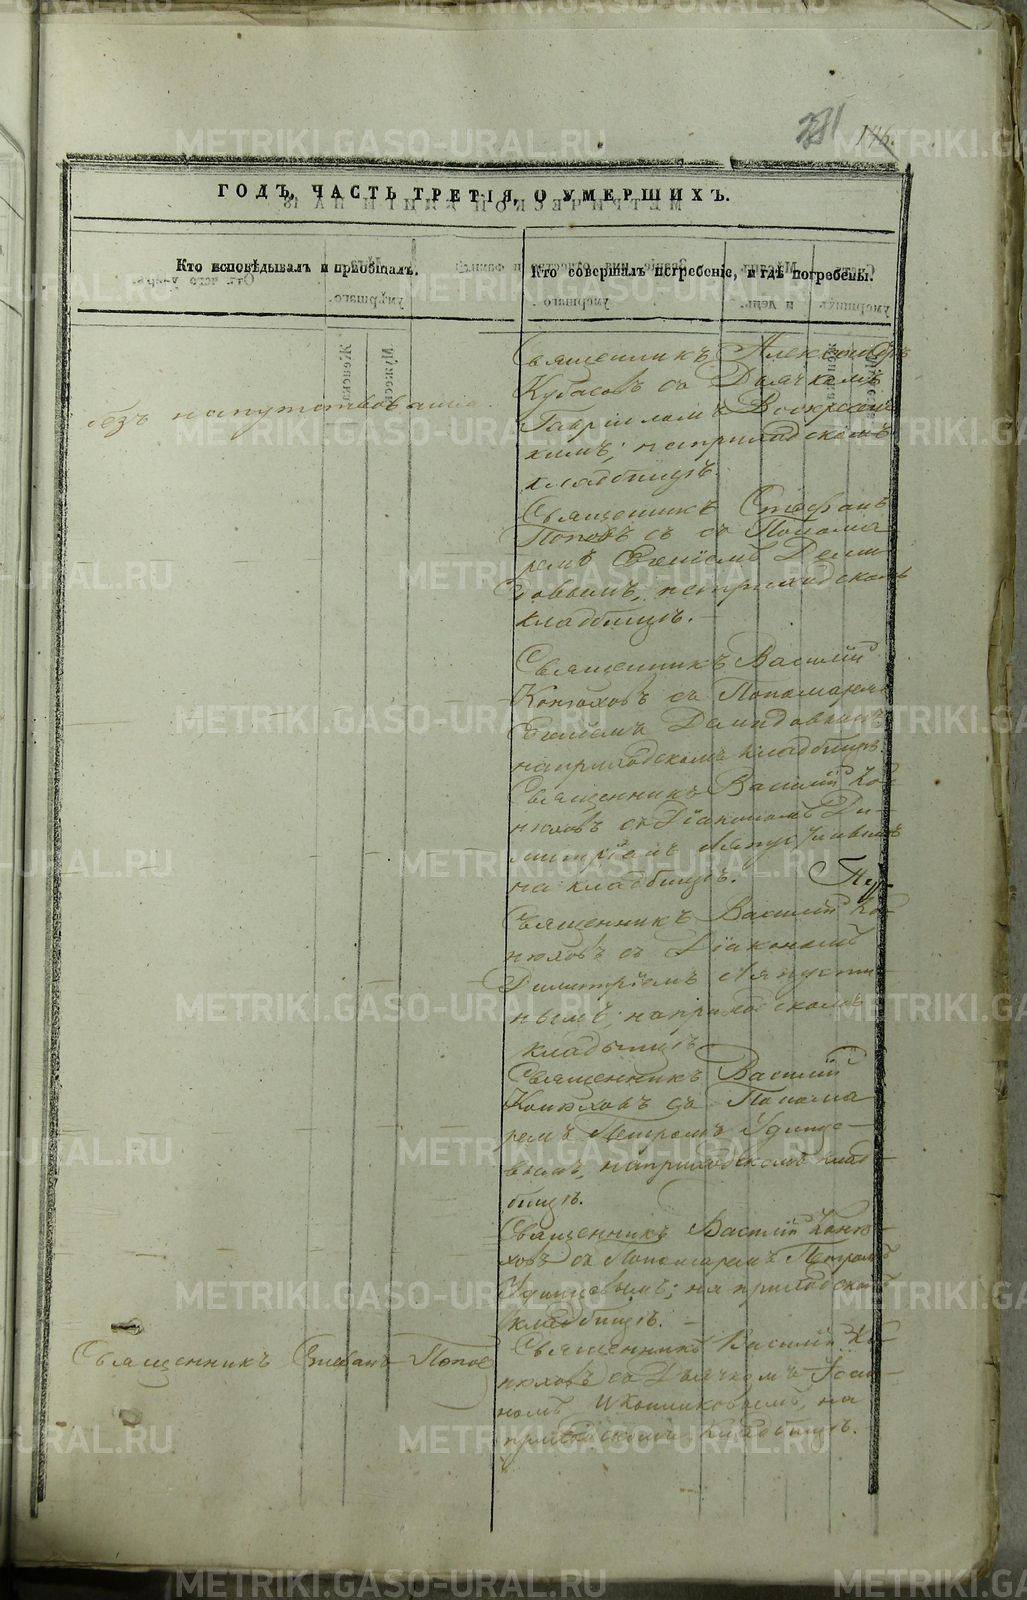 281 146.
ГОДЪ, ЧАСТЬ ТРЕТІЯ, О УМЕРШИХЪ.
Кто исповѣдывалъ и пріобщалъ.
Кто совершалъ погребеніе, и гдѣ погребены.
безъ напутствованія
Священникъ Александръ
Кубасовъ съ Дьячкомъ
Гавріиломъ Воскресенс
кимъ; наприходскомъ
кладбищѣ.
Священникъ Стефанъ
Поповъ съ Понома
ремъ Деми
довымъ, наприходскомъ
кладбищѣ. —
Священникъ Василій
Конюховъ съ Пономаремъ
Демидовымъ
наприходскомъ кладбищѣ.
Священникъ Василій Ко
нюховъ съ Діакономъ Ди
митріемъ Ляпустинымъ
на кладбищѣ.
Священникъ Василій Ко
нюховъ съ Діакономъ
Димитріемъ Ляпусти
нымъ; наприходскомъ
кладбищѣ
Священникъ Василій
Конюховъ съ Понома
ремъ Петромъ Удинцо
вымъ, наприходскомъ клад
бищѣ.
Священникъ Василій Коню
ховъ съ Пономаремъ Петромъ
Удинцовымъ; на приходскомъ
кладбищѣ. —
Священникъ Стефанъ Попов
Священникъ Василій Ко
нюховъ съ Дьячкомъ
номъ Иконниковымъ, на
приходскомъ кладбищѣ.
METRIKI.GASO-URAL.RU